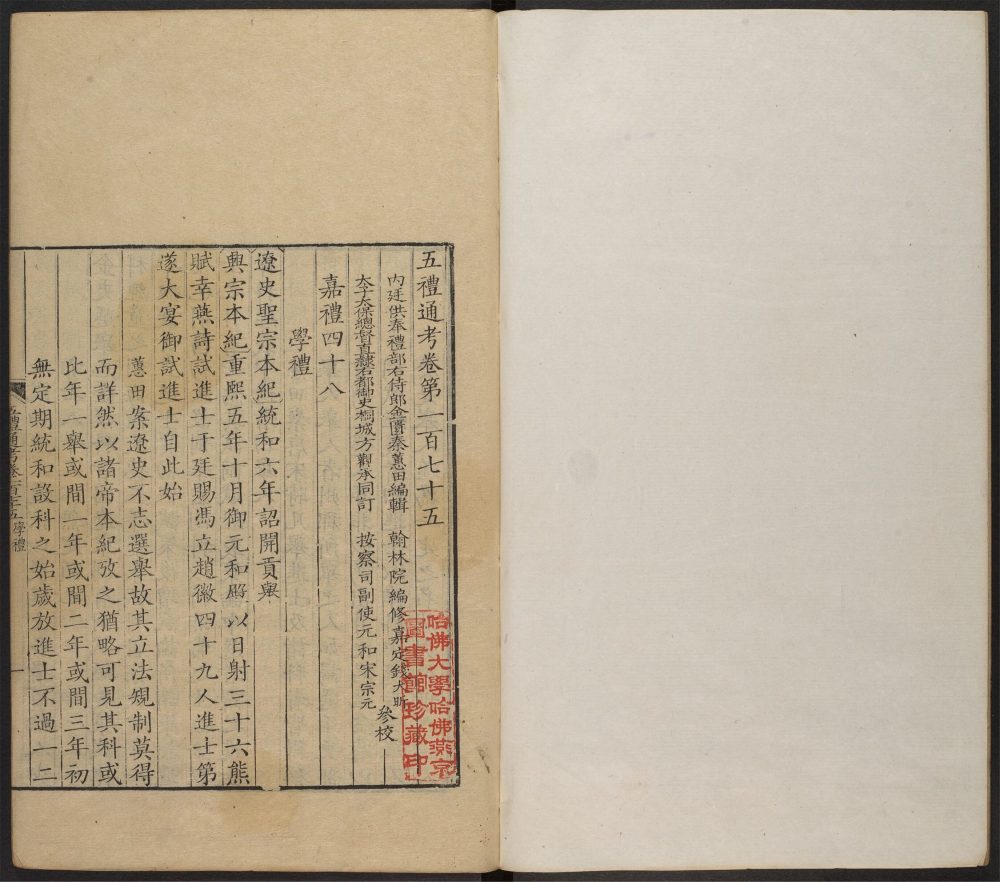 五禮通考卷第一百七十五
內廷供奉禮部右侍郎金匱秦蕙田編輯 翰林院編修嘉定錢大昕
太子太保總督直隸右都御史桐城方觀承同訂 按察司副使元和宋宗元
參校
嘉禮四十八
學禮
遼史聖宗本紀統和六年詔開貢舉
興宗本紀重熙五年十月御元和殿以日射三十六熊
賦幸燕詩試進士于廷賜馮立趙徽四十九人進士第
遂大宴御試進士自此始
蕙田案遼史不志選舉故其立法規制莫得
而詳然以諸帝本紀攷之猶略可見其科或
比年一舉或間一年或間二年或間三年初
無定期統和設科之始歲放進士不過一二
五禮通考卷一百七十五 學禮
一
哈佛大學哈佛燕京
圖書館珍藏印